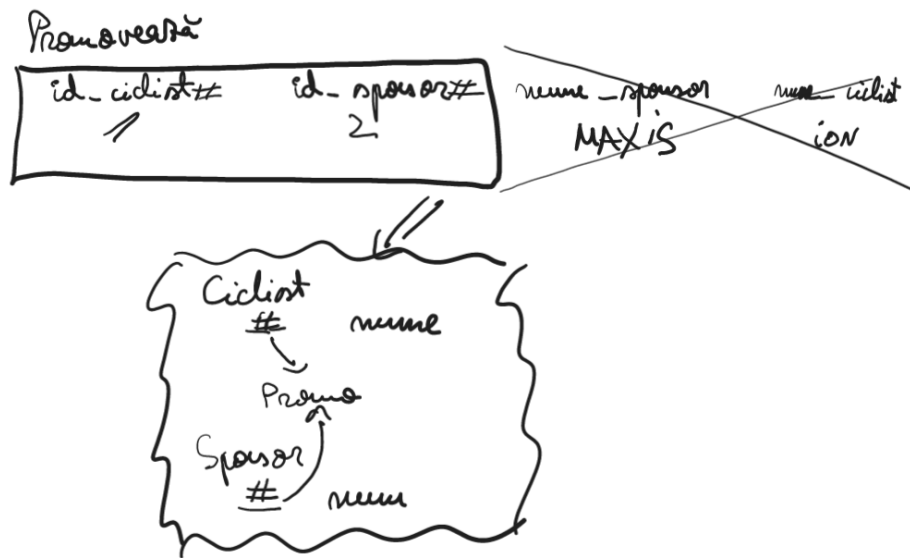 Promovează
id_ciclist# id_sponsor# nume_sponsor nume_ciclist
1 2 MAXIS ION
Ciclist
# nume
Promo
Sponsor
# num